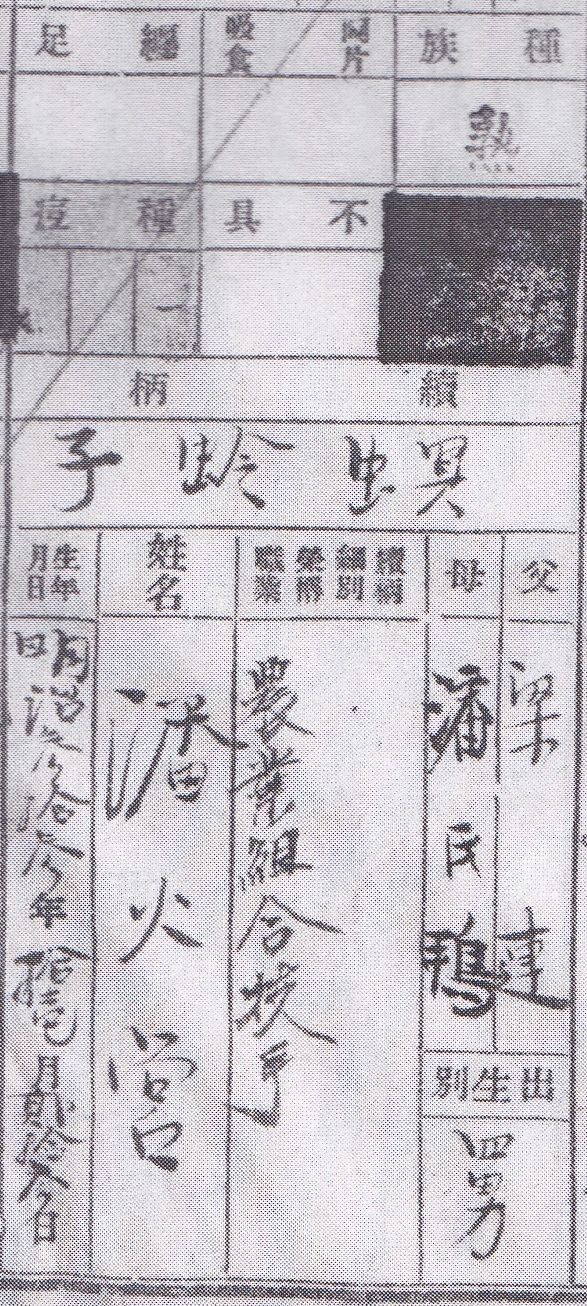 種族
阿片吸食
纏足
熟
不具
種痘
一
續柄
螟蛉子
父
母
續柄細別榮稱職業
姓名
生年月日
梁
潘氏鴨
出生別
四男
農業組合技手
潘火宮
明治
年
拾壱月貳拾
日